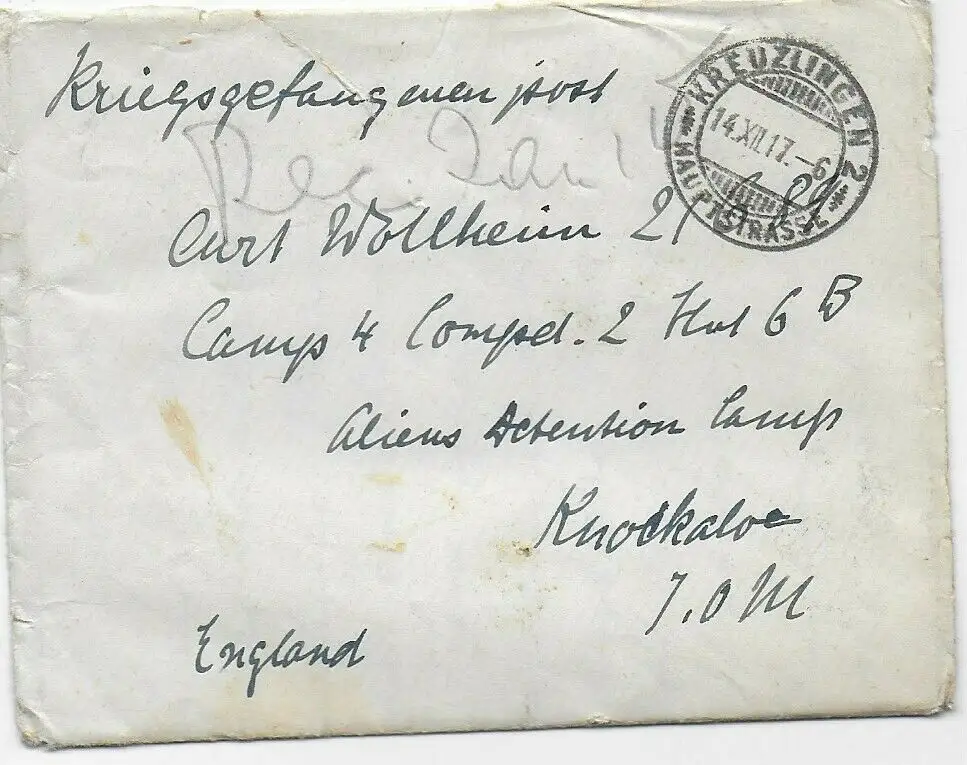 Kriegsgefangenen post
KREUZLINGEN 2
14.XII.17.-6
HAUPTSTRASSE
Rec. Jan 1
Curt Wollheim 21
Camp 4 Compd. 2 Hut 6 B
Aliens Detention Camp
Knockaloe
I.O.M
England